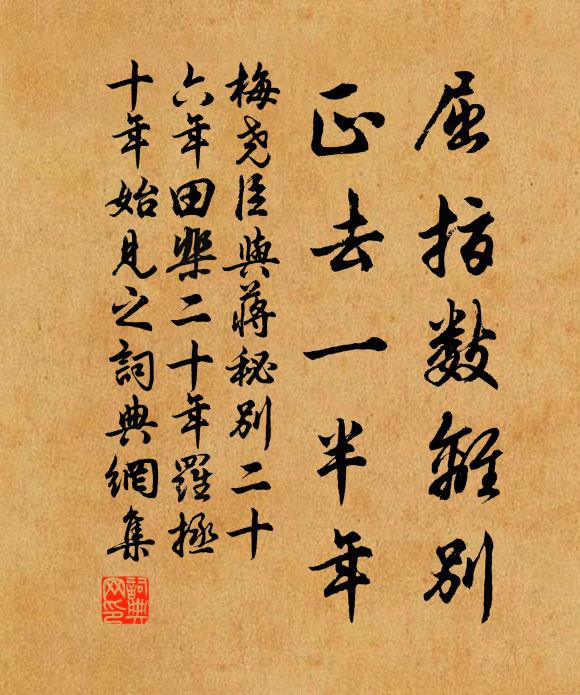 屈指數離別
正去一半年
梅堯臣與蔣秘別二十
六年田棐二十年羅拯
十年始見之詞典網集
詞典網印